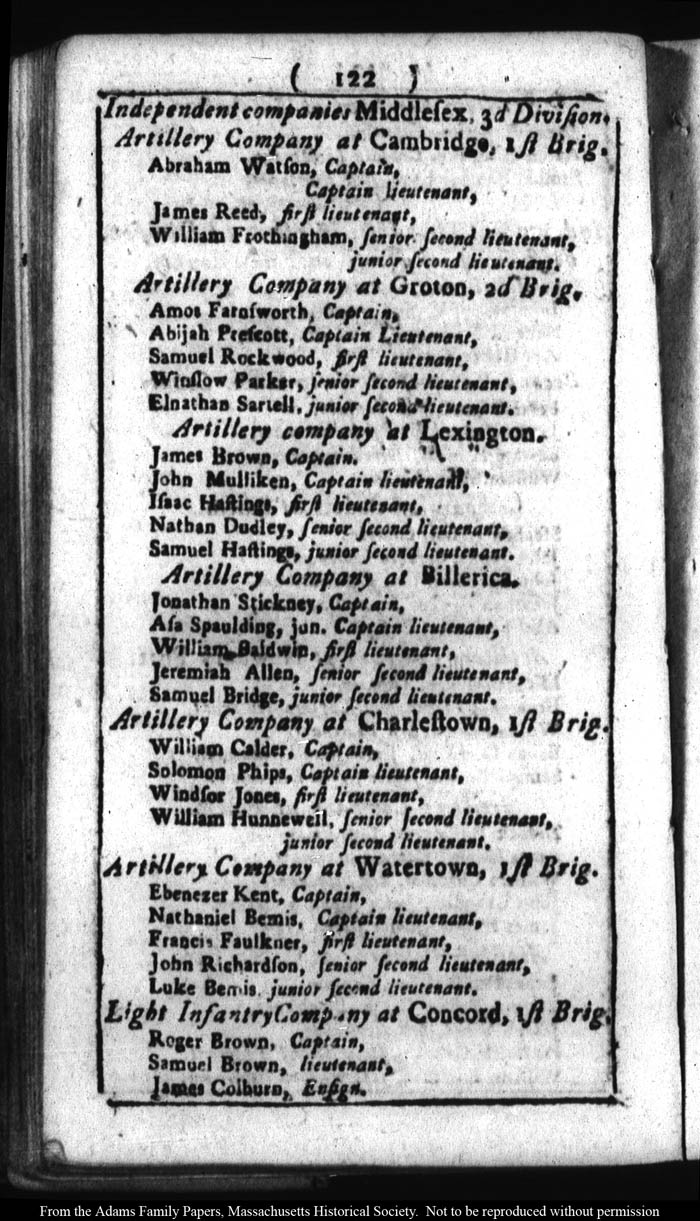 ( 122 )
Independent companies Middleſex, 3d Diviſion.
Artillery Company at Cambridge, 1ſt Brig.
Abraham Watſon, Captain,
Captain lieutenant,
James Reed, firſt lieutenant,
William Frothingham, ſenior ſecond lieutenant,
junior ſecond lieutenant.
Artillery Company at Groton, 2d Brig.
Amos Farnſworth, Captain,
Abijah Preſcott, Captain Lieutenant,
Samuel Rockwood, firſt lieutenant,
Winſlow Parker, ſenior ſecond lieutenant,
Elnathan Sartell, junior ſecond lieutenant.
Artillery company at Lexington.
James Brown, Captain.
John Mulliken, Captain lieutenant,
Iſaac Haſtings, firſt lieutenant,
Nathan Dudley, ſenior ſecond lieutenant,
Samuel Haſtings, junior ſecond lieutenant.
Artillery Company at Billerica.
Jonathan Stickney, Captain,
Aſa Spaulding, jun. Captain lieutenant,
William Baldwin, firſt lieutenant,
Jeremiah Allen, ſenior ſecond lieutenant,
Samuel Bridge, junior ſecond lieutenant.
Artillery Company at Charleſtown, 1ſt Brig.
William Calder, Captain,
Solomon Phips, Captain lieutenant,
Windſor Jones, firſt lieutenant,
William Hunneweil, ſenior ſecond lieutenant,
junior ſecond lieutenant.
Artillery Company at Watertown, 1ſt Brig.
Ebenezer Kent, Captain,
Nathaniel Bemis, Captain lieutenant,
Francis Faulkner, firſt lieutenant,
John Richardſon, ſenior ſecond lieutenant,
Luke Bemis, junior ſecond lieutenant.
Light Infantry Company at Concord, 1ſt Brig.
Roger Brown, Captain,
Samuel Brown, lieutenant,
James Colburn, Enſign.
From the Adams Family Papers, Massachusetts Historical Society. Not to be reproduced without permission